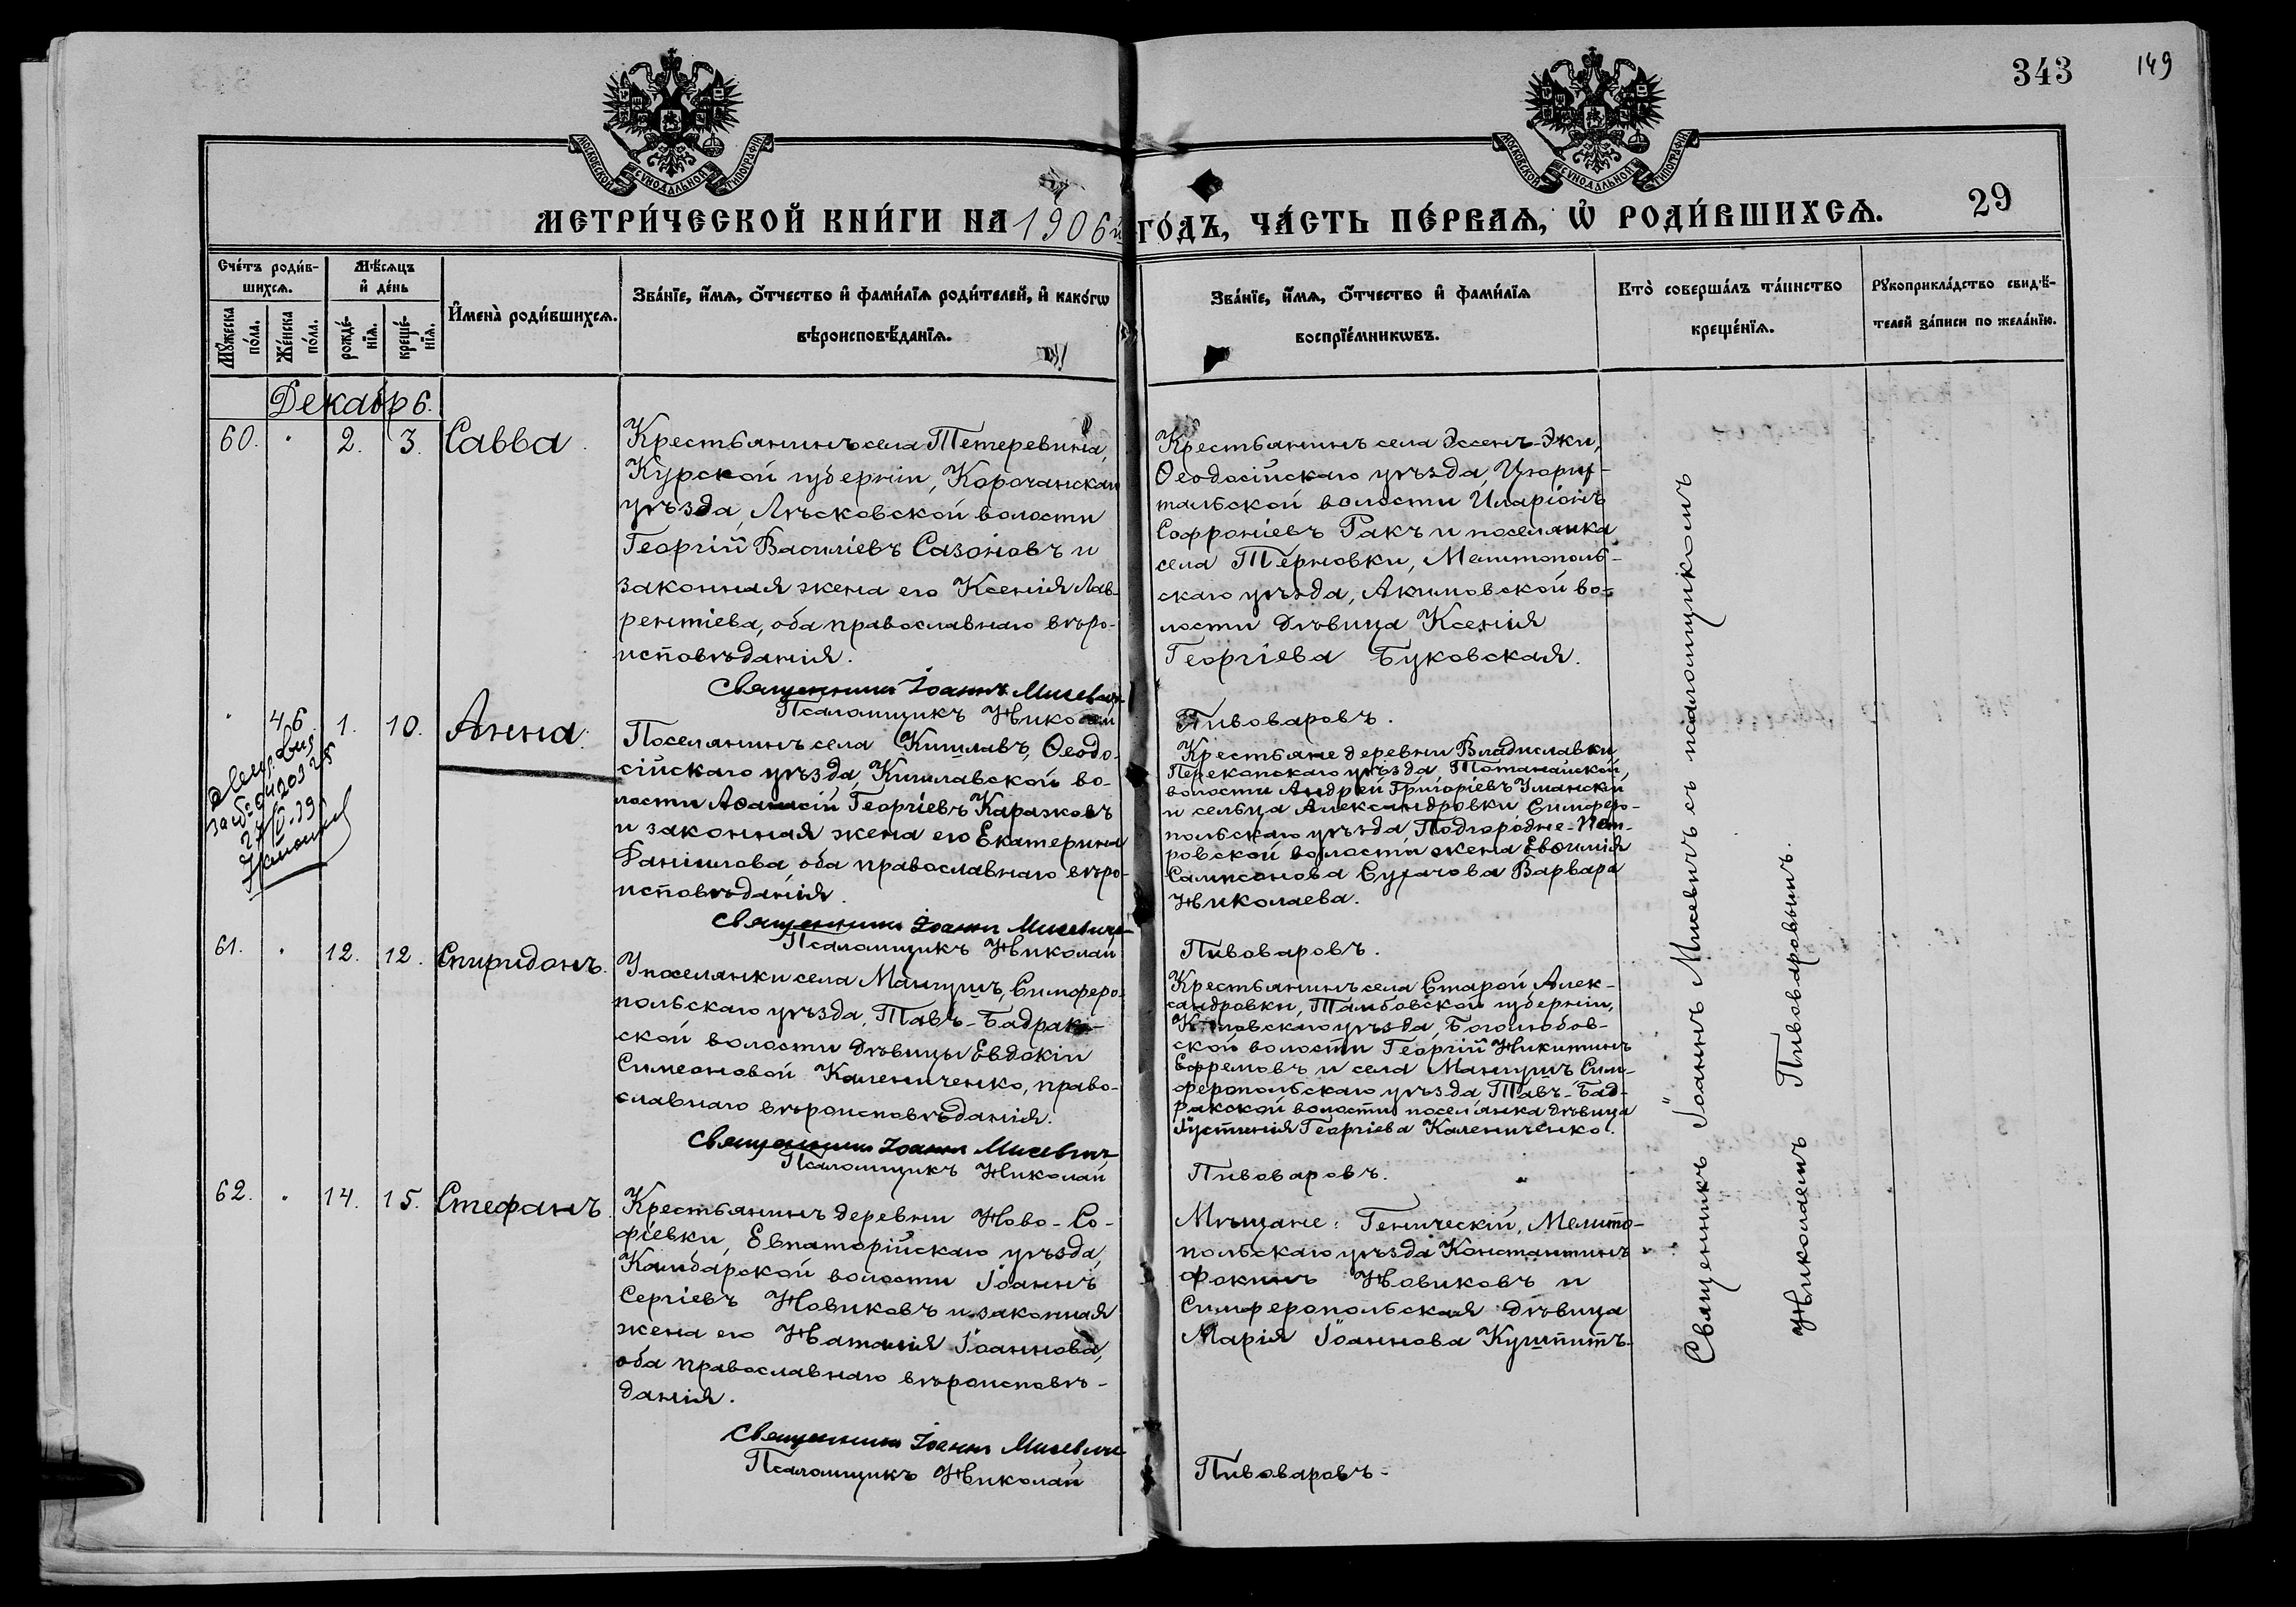 343
149
МОСКОВСКОЙ СѴНОДАЛЬНОЙ ТИПОГРАФІИ
МОСКОВСКОЙ СѴНОДАЛЬНОЙ ТИПОГРАФІИ
МЕТРИ́ЧЕСКОЙ КНИ́ГИ НА 1906й ГО́ДЪ, ЧА́СТЬ ПЕ́РВАѦ, Ѡ҆ РОДИ́ВШИХСѦ.
29
Сче́тъ роди́в-
шихсѧ.
Мꙋ́жеска по́ла.
Же́нска по́ла.
Мѣ́сѧцъ
и҆ де́нь
рожде́-
нїѧ.
креще́-
нїѧ.
И҆мена̀ роди́вшихсѧ.
Зва́нїе, и҆́мѧ, ѻ҆́тчество и҆ фами́лїѧ роди́телей, и҆ како́гѡ
вѣроисповѣ́данїѧ.
Зва́нїе, и҆́мѧ, ѻ҆́тчество и҆ фами́лїѧ
воспрїе́мникѡвъ.
Кто̀ соверша́лъ та́инство
креще́нїѧ.
Рꙋкоприкла́дство свидѣ́-
телей за́писи по жела́нїю.
Декабрь.
60. " 2. 3. Савва.
Крестьянинъ села Тетеревина,
Курской губерніи, Корочанскаго
уѣзда, Лѣсковской волости
Георгій Василіевъ Сазоновъ и
законная жена его Ксенія Лав-
рентіева, оба православнаго вѣро-
исповѣданія.
Священникъ Іоаннъ Мисевичъ
Псаломщикъ Николай
Крестьянинъ села Эссенъ-Эки,
Ѳеодосійскаго уѣзда, Цюрих-
тальской волости Иларіонъ
Софроніевъ Ракъ и поселянка
села Терновки, Мелитополь-
скаго уѣзда, Акимовской во-
лости дѣвица Ксенія
Георгіева Буковская.
Пивоваровъ.
" 46. 1. 10. Анна.
Поселянинъ села Кишлавъ, Ѳеодо-
сійскаго уѣзда, Кишлавской во-
лости Аѳанасій Георгіевъ Каражовъ
и законная жена его Екатерина
Даніилова, оба православнаго вѣро-
исповѣданія.
Священникъ Іоаннъ Мисевичъ
Псаломщикъ Николай
Крестьяне деревни Владиславки
Перекопскаго уѣзда, Тотанайской,
волости Андрей Григоріевъ Уманскій
и сельца Александровки Симферо-
польскаго уѣзда, Подгородне-Пет-
ровской волости жена Евѳимія
Сампсонова Сугачова Варвара
Николаева.
Пивоваровъ.
61. " 12. 12. Спиридонъ.
У поселянки села Мангушъ, Симферо-
польскаго уѣзда, Тавъ-Бадрак-
ской волости дѣвицы Евдокіи
Симеоновой Калениченко, право-
славнаго вѣроисповѣданія.
Священникъ Іоаннъ Мисевичъ
Псаломщикъ Николай
Крестьянинъ села Старой Алек-
сандровки, Тамбовской губерніи,
Козловскаго уѣзда, Боголюбов-
ской волости Георгій Никитинъ
Ефремовъ и села Мангушъ Сим-
феропольскаго уѣзда Тавъ-Бад-
ракской волости поселянка дѣвица
Іустинія Георгіева Калениченко.
Пивоваровъ.
62. " 14. 15. Стефанъ.
Крестьянинъ деревни Ново-Со-
фіевки, Евпаторійскаго уѣзда,
Камбарской волости Іоаннъ
Сергіевъ Новиковъ и законная
жена его Наталія Іоаннова,
оба православнаго вѣроисповѣ-
данія.
Священникъ Іоаннъ Мисевичъ
Псаломщикъ Николай
Мѣщане: Геническій, Мелито-
польскаго уѣзда Константинъ
Фокинъ Новиковъ и
Симферопольская дѣвица
Марія Іоаннова Кушпитъ.
Пивоваровъ.
Священникъ Іоаннъ Мисевичъ съ псаломщикомъ
Николаемъ Пивоваровымъ.